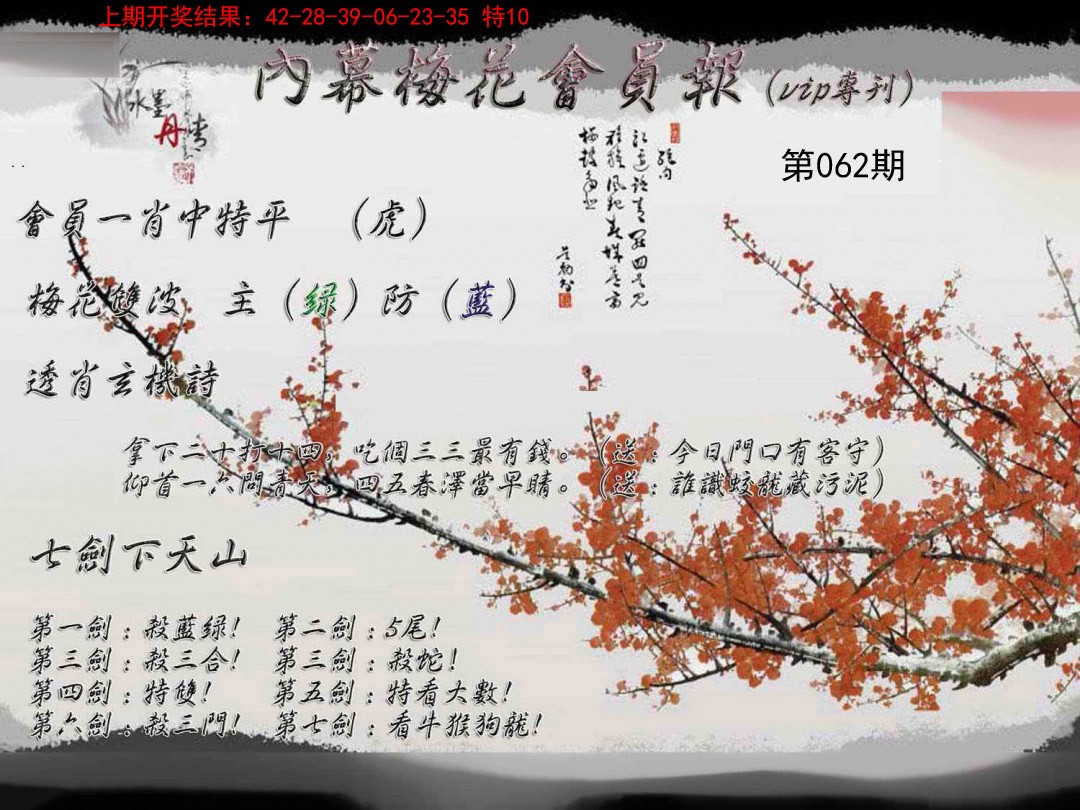 上期开奖结果：42-28-39-06-23-35 特10
內幕梅花會員報（vip專刊）
水墨
丹
情
第062期
會員一肖中特平 （虎）
梅花雙波 主（緑）防（藍）
透肖玄機詩
拿下二十打十四，吃個三三最有錢。（送：今日門口有客守）
仰首一六問青天，四五春澤當早晴。（送：誰識蛟龍藏污泥）
七劍下天山
第一劍：殺藍緑！ 第二劍：5尾！
第三劍：殺三合！ 第三劍：殺蛇！
第四劍：特雙！ 第五劍：特看大數！
第六劍：殺三門！ 第七劍：看牛猴狗龍！